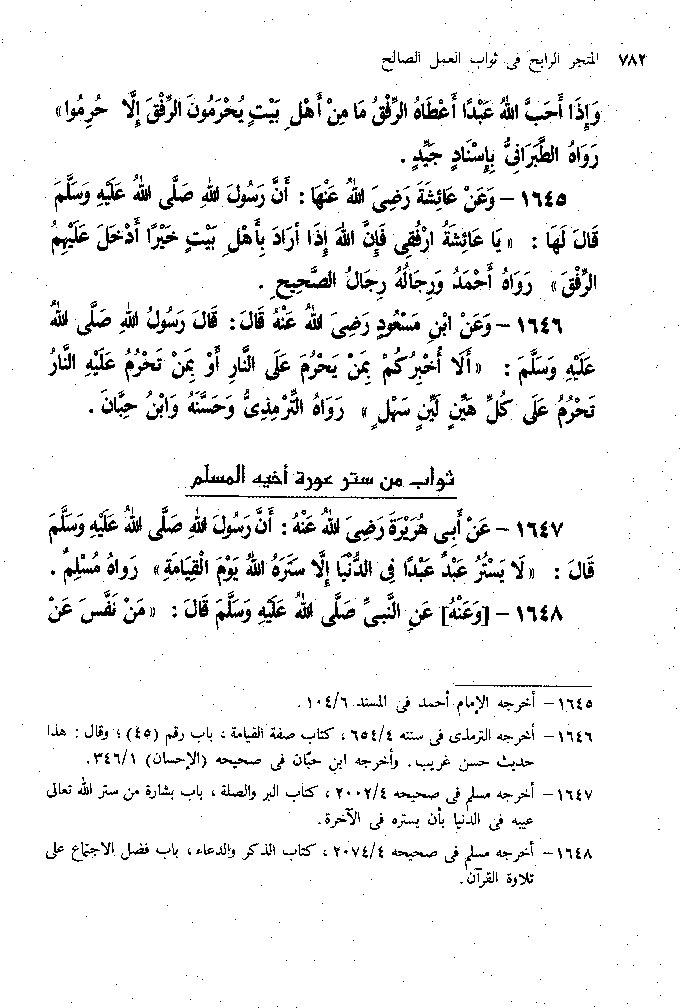 ٧٨٢ المتجر الرابح فى ثواب العمل الصالح
وَإِذَا أَحَبَّ اللهُ عَبْدًا أَعْطَاهُ الرِّفْقَ مَا مِنْ أَهْلِ بَيْتٍ يُحْرَمُونَ الرِّفْقَ إِلَّا حُرِمُوا»
رَوَاهُ الطَّبَرَانِىُّ بِإِسْنَادٍ جَيِّدٍ .
١٦٤٥ - وَعَنْ عَائِشَةَ رَضِىَ اللهُ عَنْهَا : أَنَّ رَسُولَ اللهِ صَلَّى اللهُ عَلَيْهِ وَسَلَّمَ
قَالَ لَهَا : « يَا عَائِشَةُ ارْفُقِى فَإِنَّ اللهَ إِذَا أَرَادَ بِأَهْلِ بَيْتٍ خَيْرًا أَدْخَلَ عَلَيْهِمُ
الرِّفْقَ» رَوَاهُ أَحْمَدُ وَرِجَالُهُ رِجَالُ الصَّحِيحِ .
١٦٤٦ - وَعَنْ ابْنِ مَسْعُودٍ رَضِىَ اللهُ عَنْهُ قَالَ : قَالَ رَسُولُ اللهِ صَلَّى اللهُ
عَلَيْهِ وَسَلَّمَ : «أَلَا أُخْبِرُكُمْ بِمَنْ يَحْرُمُ عَلَى النَّارِ أَوْ بِمَنْ تَحْرُمُ عَلَيْهِ النَّارُ
تَحْرُمُ عَلَى كُلِّ هَيِّنٍ لَيِّنٍ سَهْلٍ» رَوَاهُ التِّرْمِذِىُّ وَحَسَّنَهُ وَابْنُ حِبَّانَ .
ثواب من ستر عورة أخيه المسلم
١٦٤٧ - عَنْ أَبِى هُرَيْرَةَ رَضِىَ اللهُ عَنْهُ : أَنَّ رَسُولَ اللهِ صَلَّى اللهُ عَلَيْهِ وَسَلَّمَ
قَالَ : « لَا يَسْتُرُ عَبْدٌ عَبْدًا فِى الدُّنْيَا إِلَّا سَتَرَهُ اللهُ يَوْمَ الْقِيَامَةِ» رَوَاهُ مُسْلِمٌ .
١٦٤٨ - [وَعَنْهُ] عَنِ النَّبِىِّ صَلَّى اللهُ عَلَيْهِ وَسَلَّمَ قَالَ : «مَنْ نَفَّسَ عَنْ
١٦٤٥ - أخرجه الإمام أحمد فى المسند ١٠٤/٦ .
١٦٤٦ - أخرجه الترمذى فى سننه ٦٥٤/٤ ، كتاب صفة القيامة ، باب رقم (٤٥) ؛ وقال : هذا
حديث حسن غريب. وأخرجه ابن حبّان فى صحيحه (الإحسان) ٣٤٦/١.
١٦٤٧ - أخرجه مسلم فى صحيحه ٢٠٠٢/٤ ، كتاب البر والصلة ، باب بشارة من ستر الله تعالى
عيبه فى الدنيا بأن يستره فى الآخرة.
١٦٤٨ - أخرجه مسلم فى صحيحه ٢٠٧٤/٤ ، كتاب الذكر والدعاء ، باب فضل الاجتماع على
تلاوة القرآن.